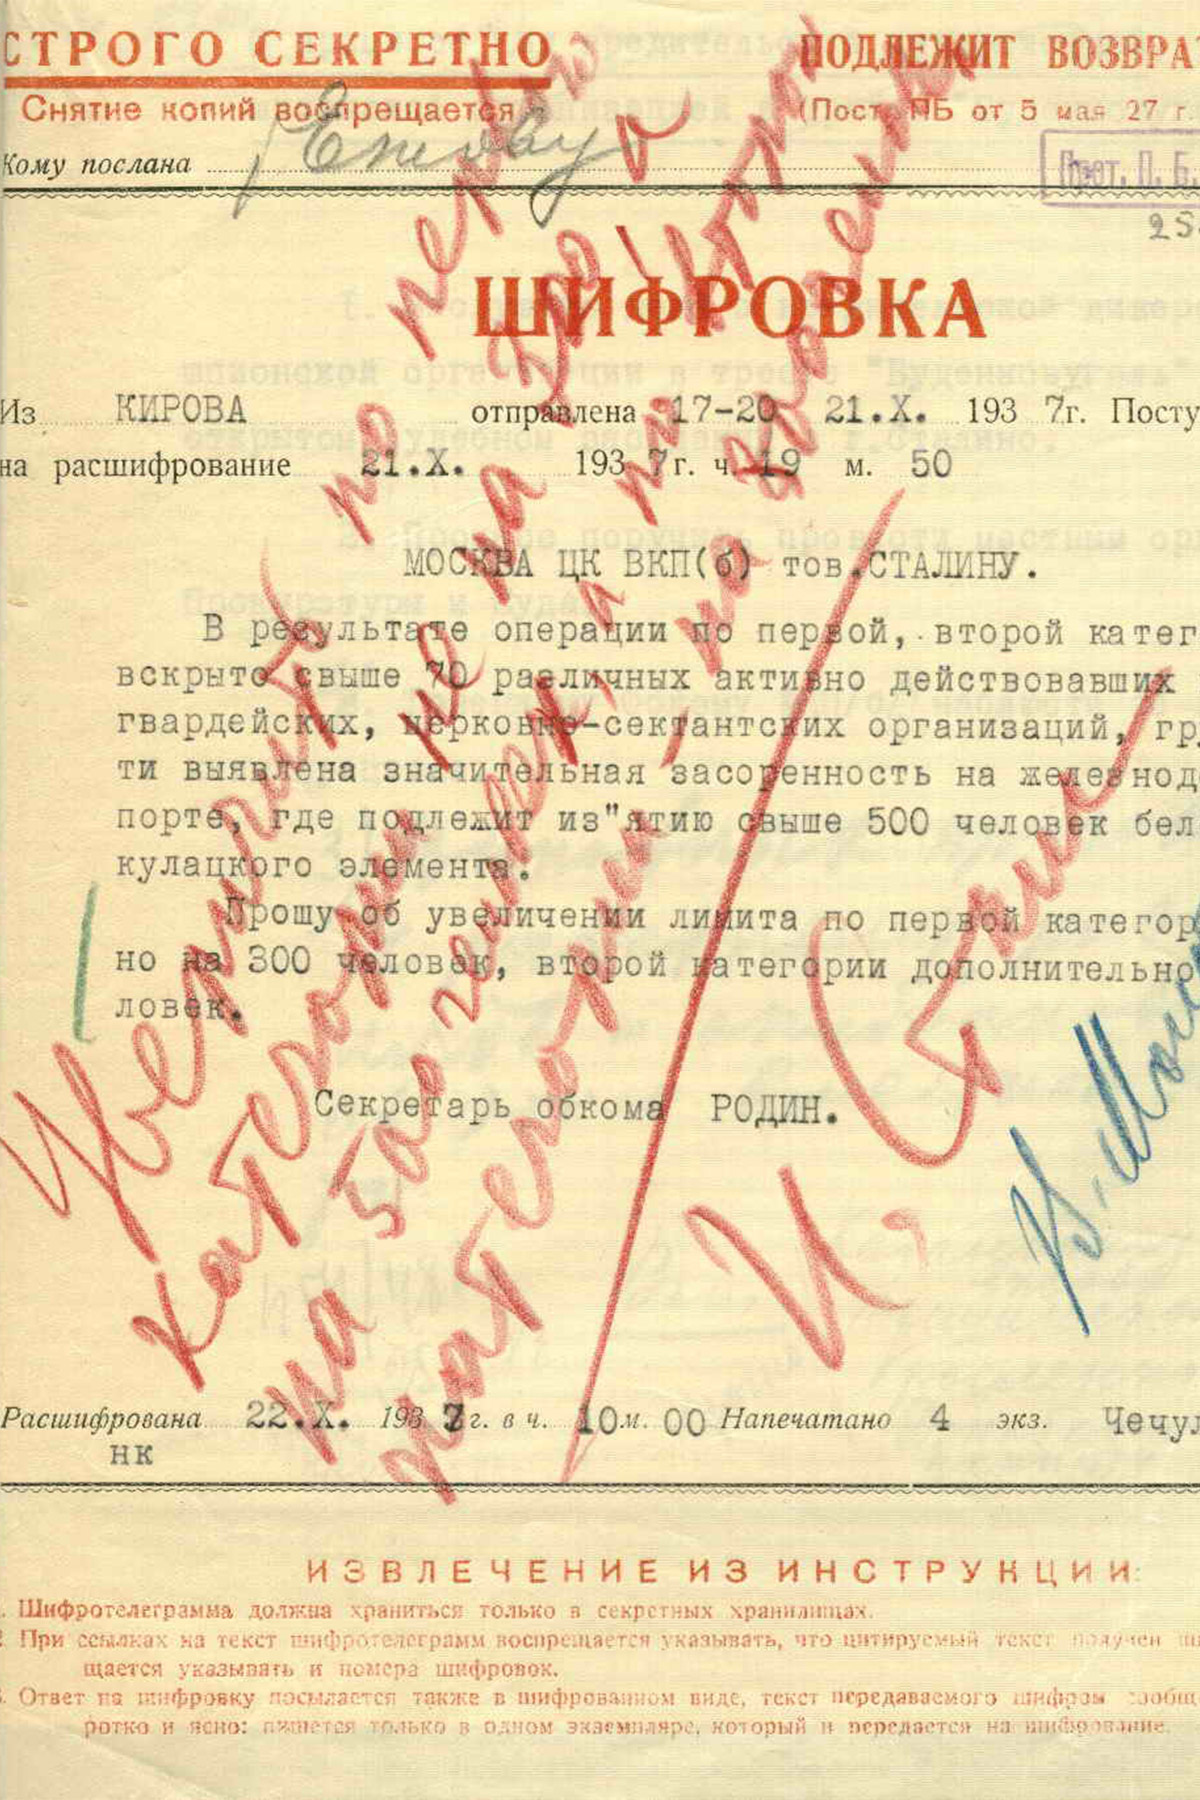 СТРОГО СЕКРЕТНО
ПОДЛЕЖИТ ВОЗВРАТ
Снятие копий воспрещается
(Пост. ПБ от 5 мая 27 г.
Кому послана Ежову
Прот. П. Б.
25
ШИФРОВКА
Из КИРОВА отправлена 17-20 21.X. 1937г. Посту
на расшифрование 21.X. 1937г. ч. 19 м. 50
МОСКВА ЦК ВКП(б) тов.СТАЛИНУ.
В результате операции по первой, второй катег
вскрыто свыше 70 различных активно действовавших
гвардейских, церковно-сектантских организаций, гру
ти выявлена значительная засоренность на железнод
порте, где подлежит из"ятию свыше 500 человек бел
кулацкого элемента.
Прошу об увеличении лимита по первой категор
но на 300 человек, второй категории дополнительно
ловек.
Секретарь обкома РОДИН.
Увеличить по первой
категории не на 300, а
на 500 человек, а по второй
категории – на 800 человек
И. Сталин
В. Мол
Расшифрована 22.X. 1937г. в ч. 10 м. 00 Напечатано 4 экз. Чечул
НК
ИЗВЛЕЧЕНИЕ ИЗ ИНСТРУКЦИИ:
. Шифротелеграмма должна храниться только в секретных хранилищах.
2. При ссылках на текст шифротелеграмм воспрещается указывать, что цитируемый текст получен ши
щается указывать и номера шифровок.
3. Ответ на шифровку посылается также в шифрованном виде, текст передаваемого шифром сообщ
ротко и ясно: пишется только в одном экземпляре, который и передается на шифрование.